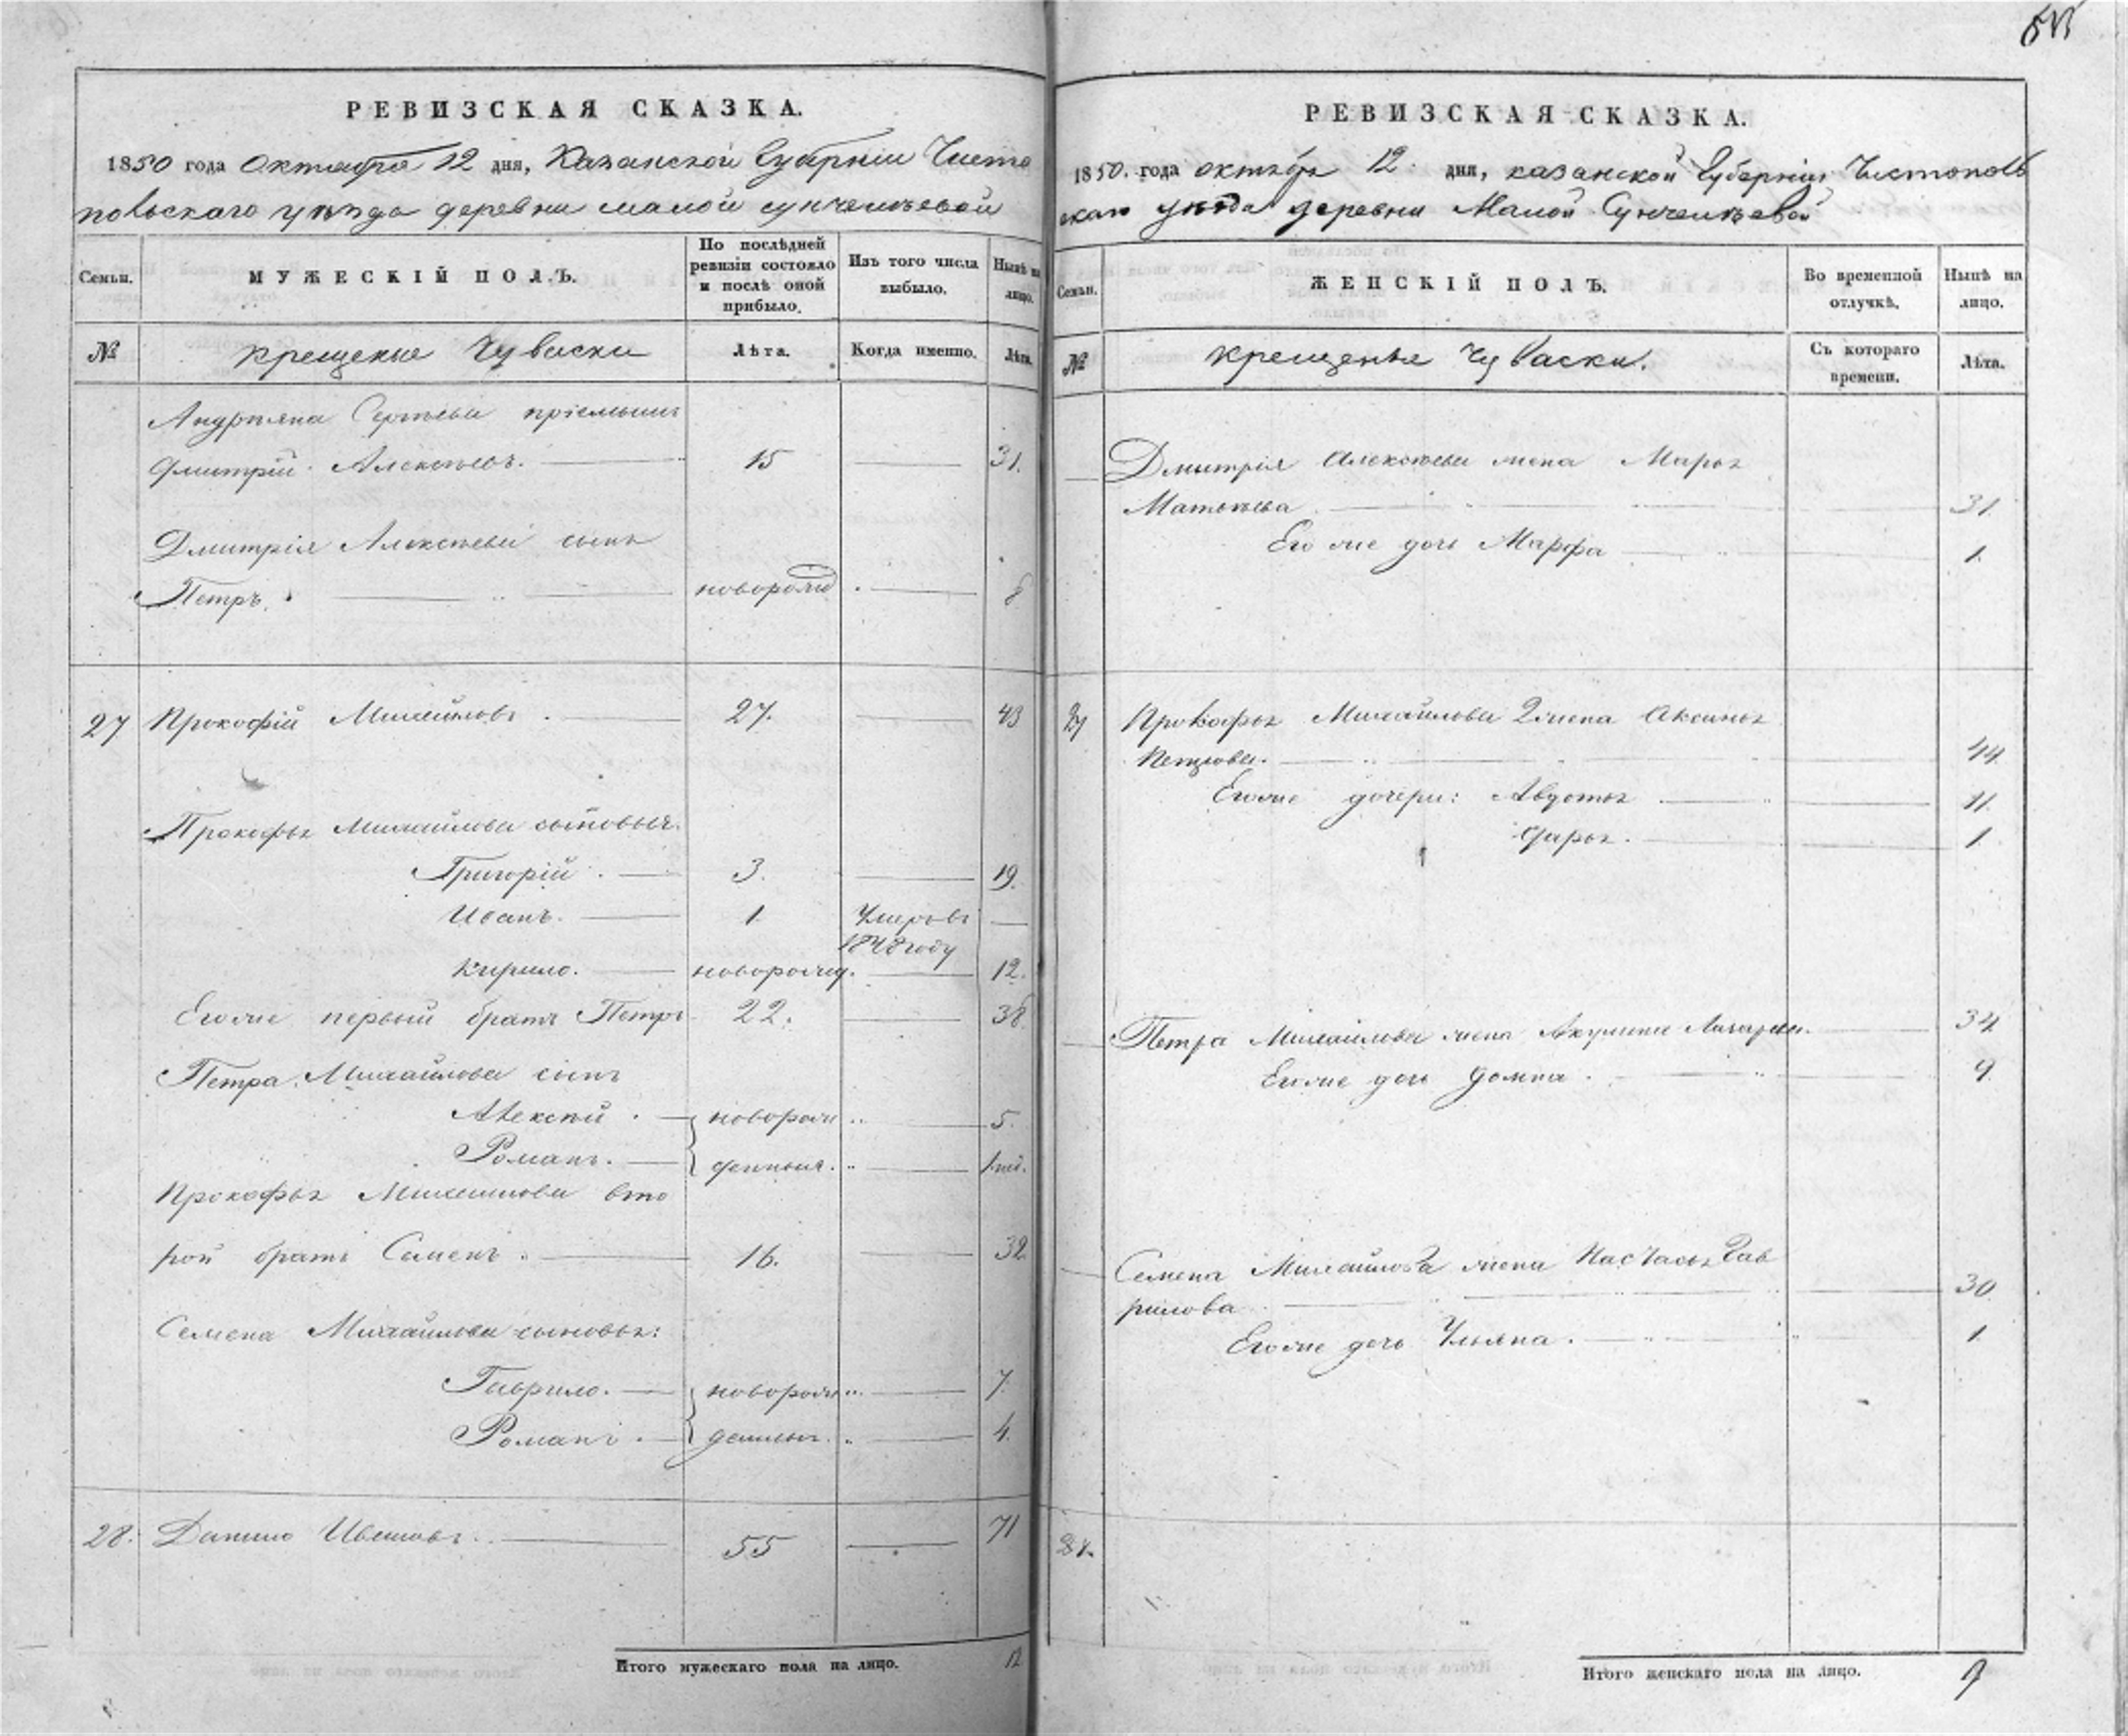 РЕВИЗСКАЯ СКАЗКА.
1850 года Октября 12 дня, Казанской Губерніи Чисто
польскаго уѣзда деревни малой сунчелѣевой
Семьи.
МУЖЕСКІЙ ПОЛЪ.
По послѣдней ревизіи состояло и послѣ оной прибыло.
Изъ того числа выбыло.
Нынѣ на лицо.
№
крещеные Чуваски
Лѣта.
Когда именно.
Лѣта.
Андреяна Сергѣева пріемышъ
Дмитрій Алексѣевъ. 15 31.
Дмитрія Алексѣева сынъ
Петръ. новорожд 8
27 Прокофій Михайловъ 27. 43
Прокофья Михайлова сыновья.
Григорій 3. 19.
Иванъ. 1 Умеръ въ
1848 году
Кирило. новорожд. 12.
Егоже первый братъ Петръ 22. 38
Петра Михайлова сынъ
Алексѣй новорож 5.
Романъ. денныя. 1 нед.
Прокофья Михайлова вто
рой братъ Семенъ. 16. 32
Семена Михайлова сыновья:
Гаврило. новорож 7.
Романъ денныя. 4.
28. Данило Ивановъ. 55 71
Итого мужескаго пола на лицо. 12
РЕВИЗСКАЯ СКАЗКА.
1850. года октября 12 дня, казанской Губерніи Чистополь
скаго уѣзда деревни Малой Сунчелѣевой
Семьи.
ЖЕНСКІЙ ПОЛЪ.
Во временной отлучкѣ.
Нынѣ на лицо.
№
крещенья Чуваски.
Съ котораго времени.
Лѣта.
Дмитрія Алексѣева жена Марья
Матвѣева 31.
Его же дочь Марфа 1.
27 Прокофья Михайлова 2 жена Аксинья
Петрова. 44
Егоже дочери: Авдотья 11.
Дарья. 1
Петра Михайлова жена Акулина 34
Егоже дочь Домна. 9.
Семена Михайлова жена Настасья Гав
рилова 30
Егоже дочь Ульяна. 1
28.
Итого женскаго пола на лицо. 9